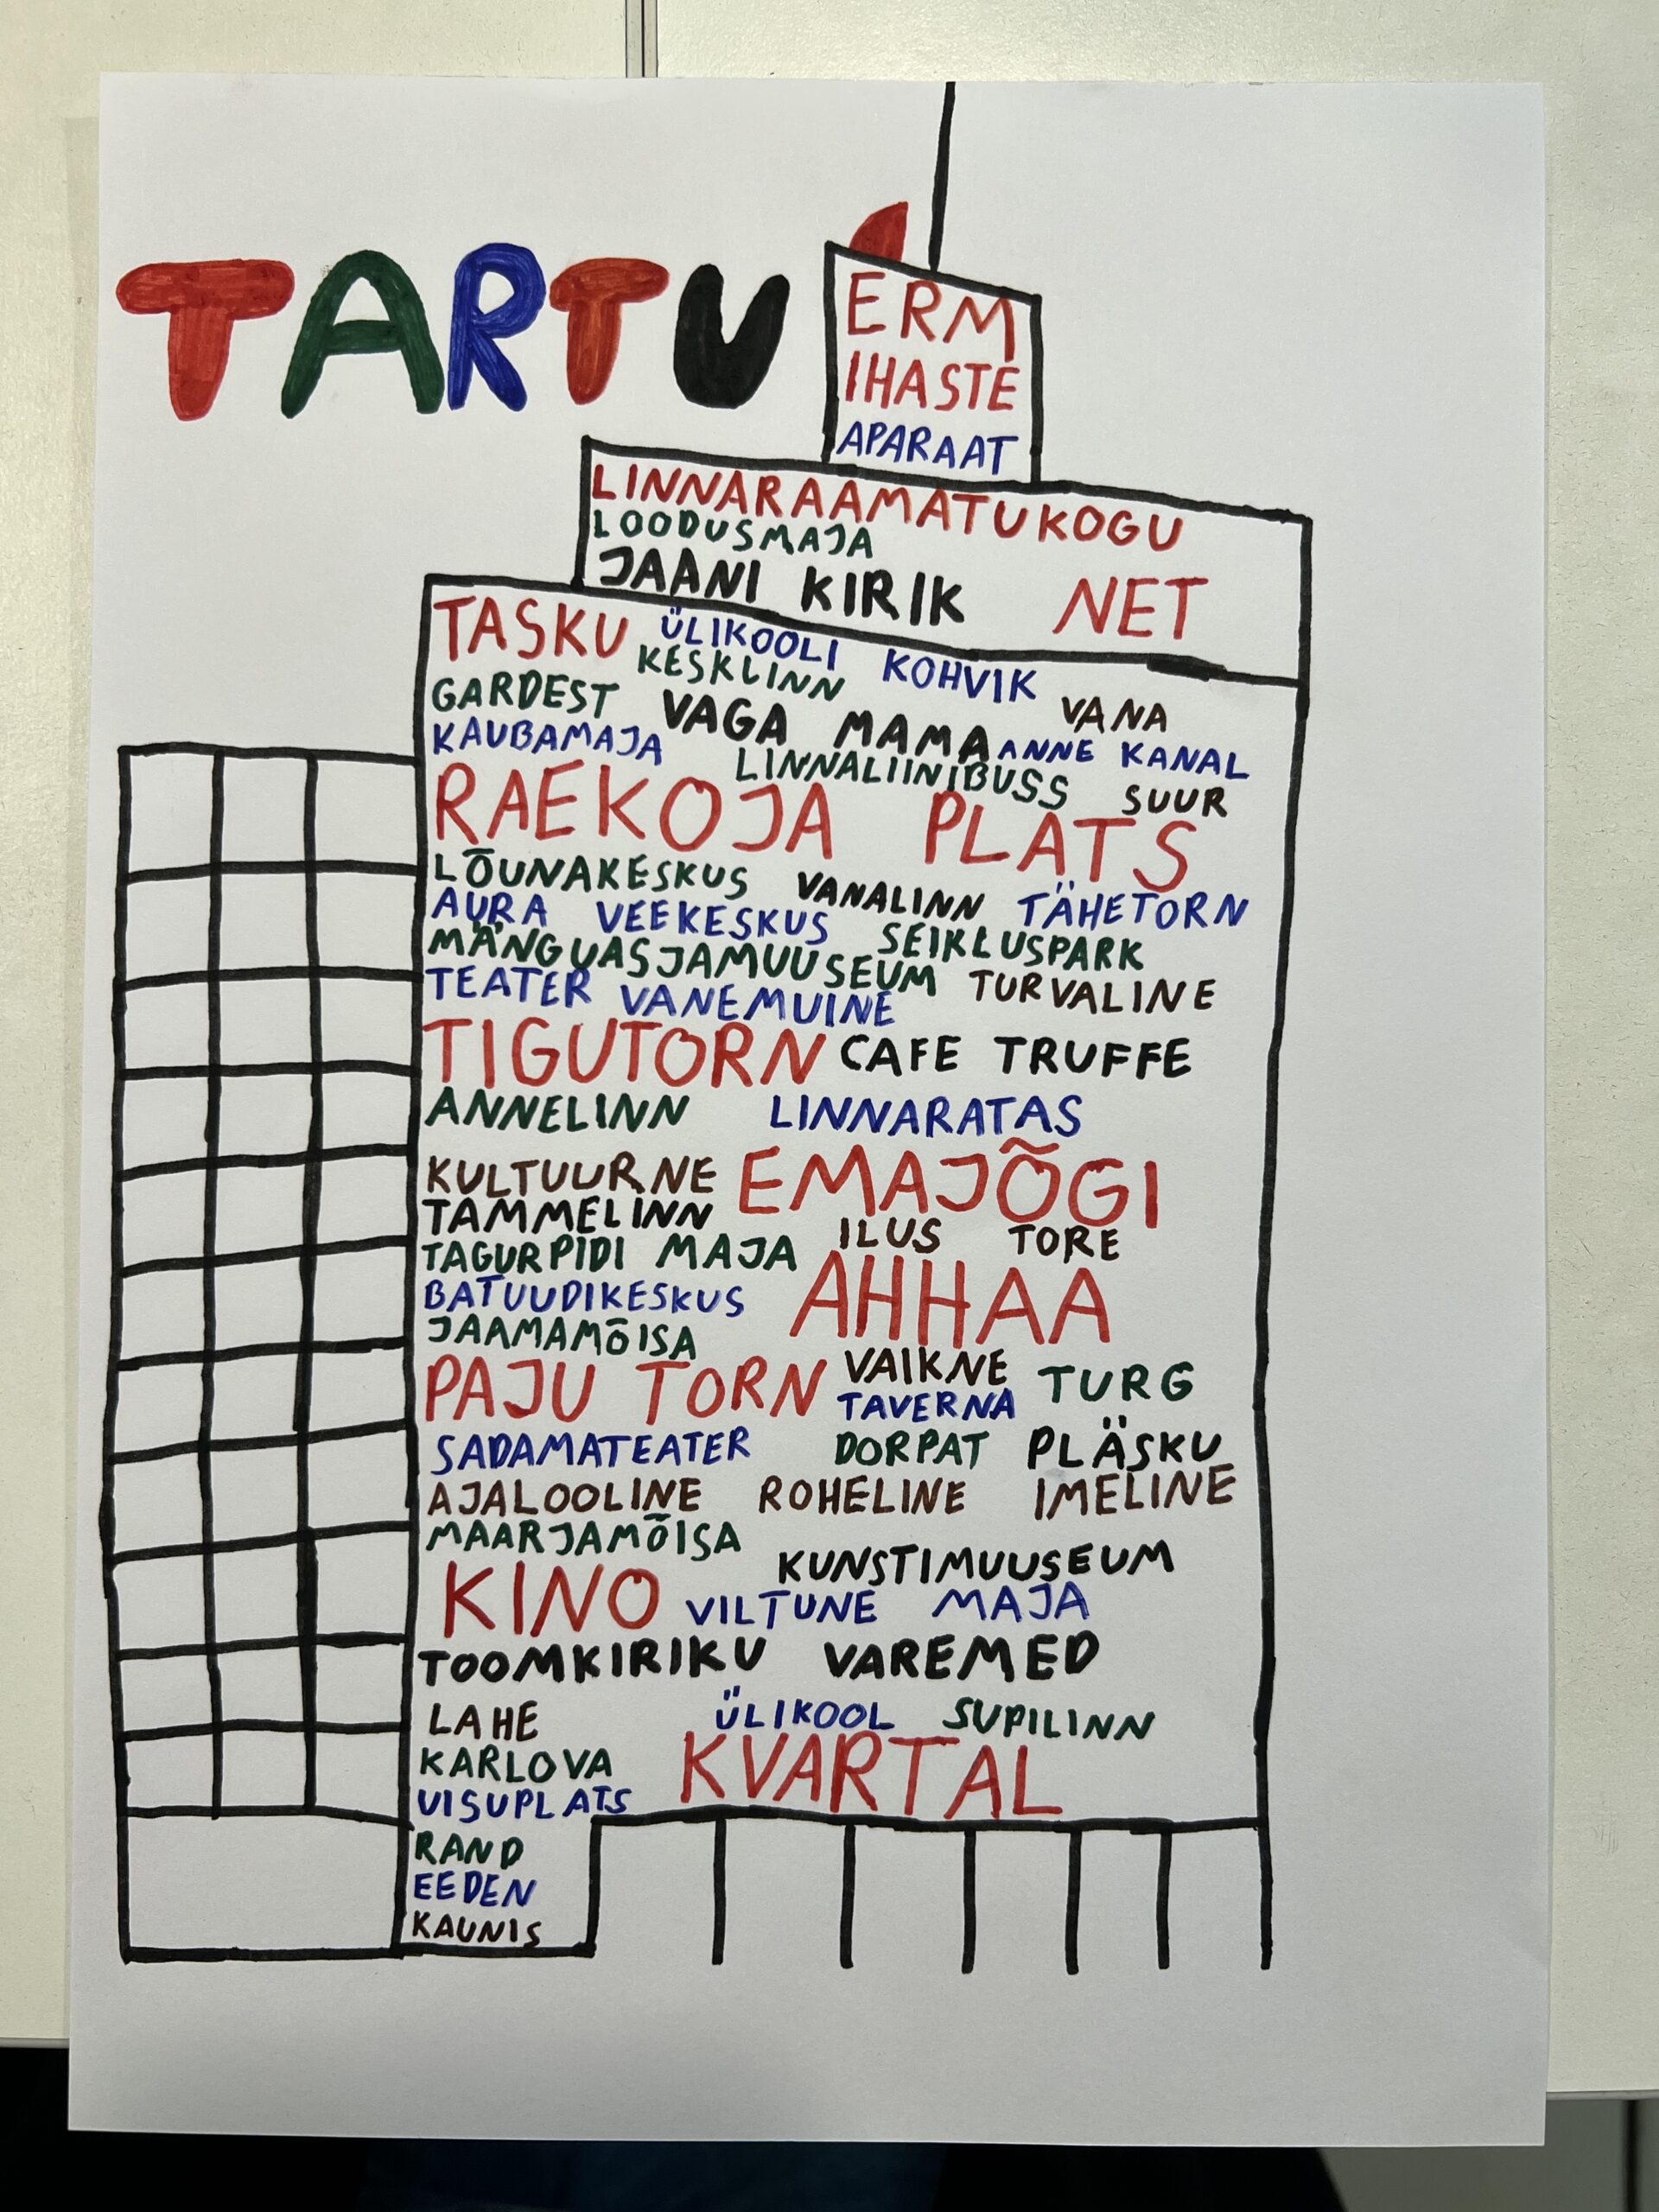 TARTU
ERM
IHASTE
APARAAT
LINNARAAMATUKOGU
LOODUSMAJA
JAANI KIRIK NET
TASKU ÜLIKOOLI KOHVIK
KESKLINN
GARDEST VAGA MAMA VANA
KAUBAMAJA ANNE KANAL
LINNALIINIBUSS SUUR
RAEKOJA PLATS
LÕUNAKESKUS VANALINN TÄHETORN
AURA VEEKESKUS SEIKLUSPARK
MÄNGUASJAMUUUSEUM TURVALINE
TEATER VANEMUINE
TIGUTORN CAFE TRUFFE
ANNELINN LINNARATAS
KULTUURNE EMAJÕGI
TAMMELINN ILUS TORE
TAGURPIDI MAJA
BATUUDIKESKUS AHHAA
JAAMAMÕISA
PAJU TORN VAIKNE TURG
TAVERNA
SADAMATEATER DORPAT PLÄSKU
AJALOOLINE ROHELINE IMELINE
MAARJAMÕISA KUNSTIMUUSEUM
KINO VILTUNE MAJA
TOOMKIRIKU VAREMED
LAHE ÜLIKOOL SUPILINN
KARLOVA KVARTAL
UISUPLATS
RAND
EEDEN
KAUNIS